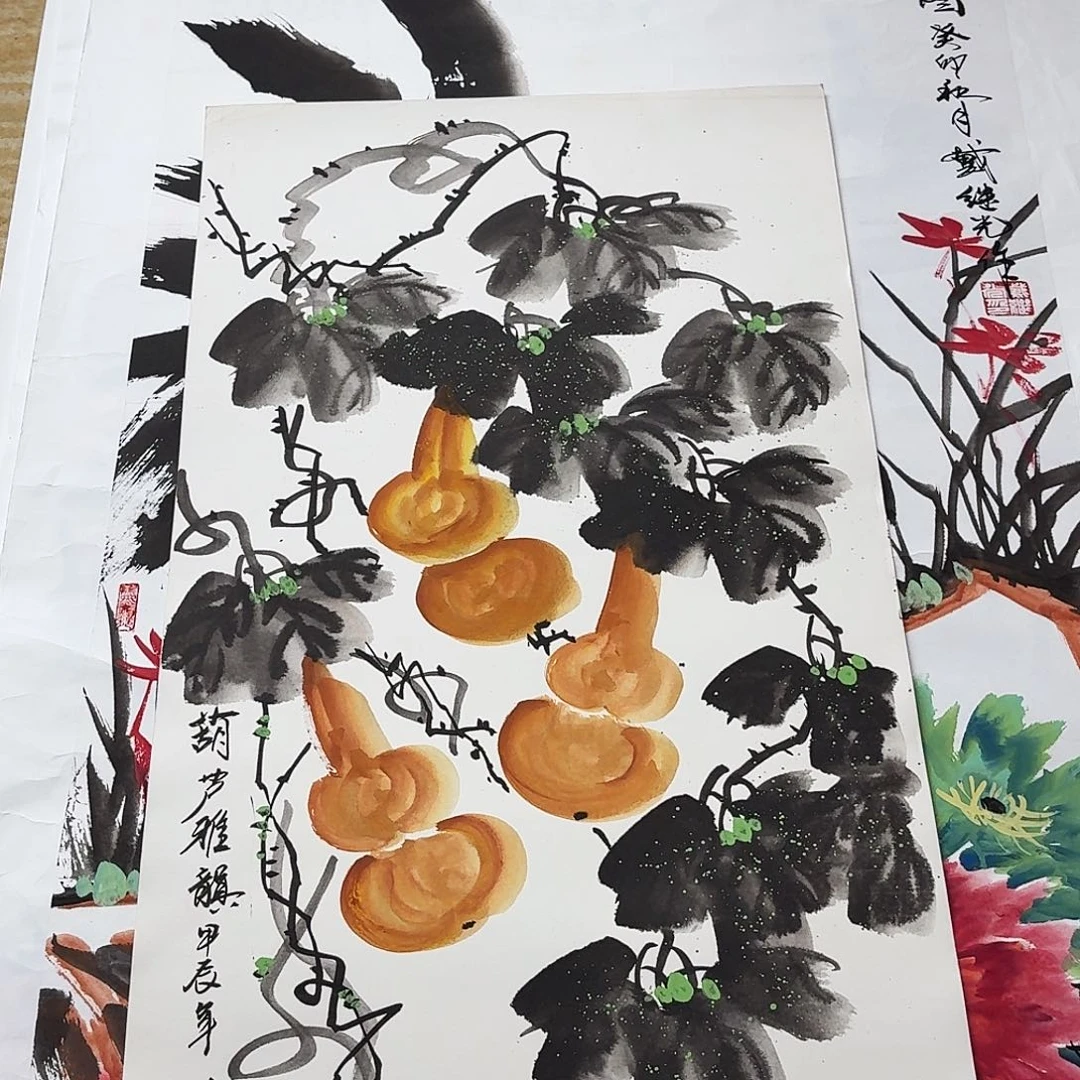 癸卯秋月戴继光
葫芦雅韻甲辰年